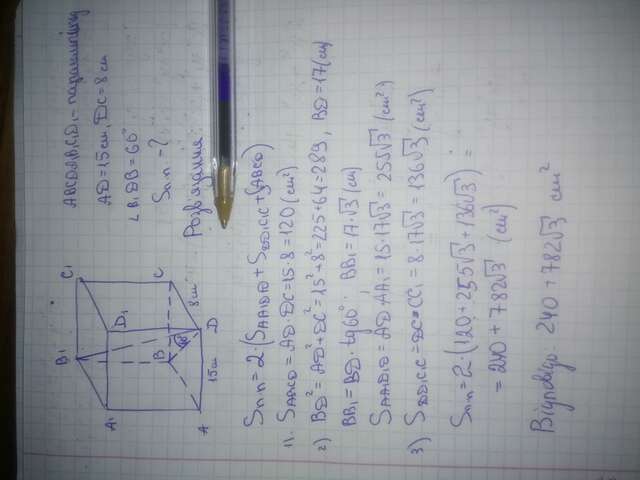 ABCDA₁B₁C₁D₁ - паралелепіпед
AD = 15 см, DC = 8 см
∠B₁DB = 60°
Sп.п. - ?
Розв'язання
B₁
C₁
A₁
D₁
B
C
60°
8см
A
D
15см
Sп.п. = 2(SAA₁D₁D + SDD₁C₁C + SABCD)
1) SABCD = AD · DC = 15 · 8 = 120 (см²)
2) BD² = AD² + DC² = 15² + 8² = 225 + 64 = 289, BD = 17 (см)
BB₁ = BD · tg60°; BB₁ = 17·√3 (см)
SAA₁D₁D = AD · AA₁ = 15 · 17√3 = 255√3 (см²)
3) SDD₁C₁C = DC · CC₁ = 8 · 17√3 = 136√3 (см²)
Sп.п. = 2 · (120 + 255√3 + 136√3) =
= 240 + 782√3 (см²)
Відповідь: 240 + 782√3 см²